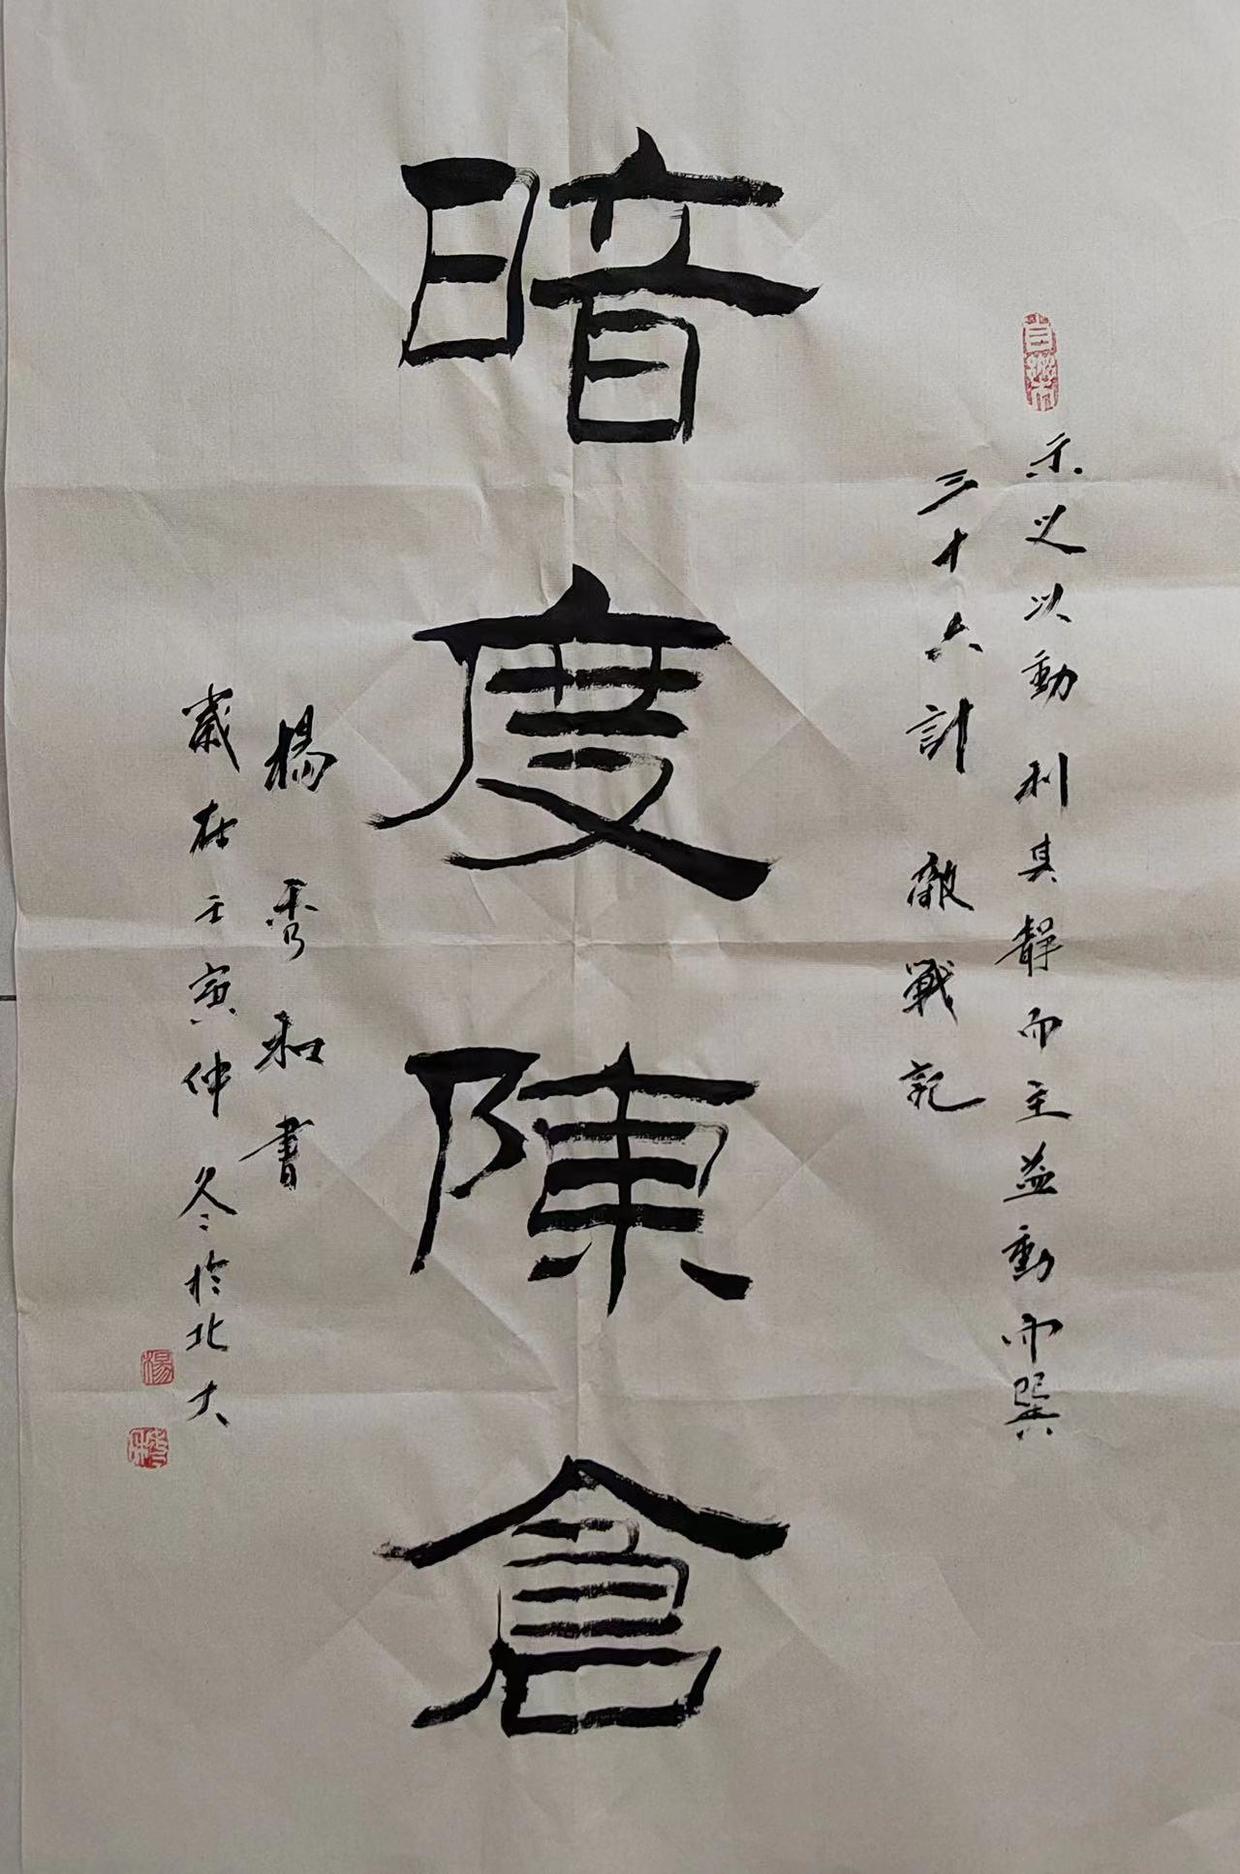 示义以動利其靜而主益動而巽
三十六計敵戰記
暗度陳倉
楊秀和書
歲在壬寅仲冬於北大
楊
秀和